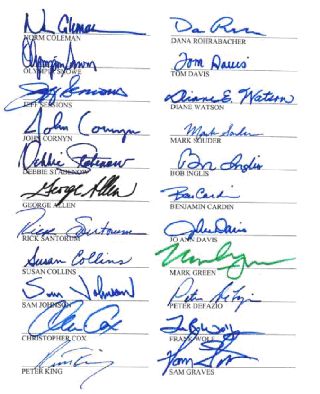 Norm Coleman
NORM COLEMAN
Olympia Snowe
OLYMPIA SNOWE
Jeff Sessions
JEFF SESSIONS
John Cornyn
JOHN CORNYN
Debbie Stabenow
DEBBIE STABENOW
George Allen
GEORGE ALLEN
Rick Santorum
RICK SANTORUM
Susan Collins
SUSAN COLLINS
Sam Johnson
SAM JOHNSON
Chris Cox
CHRISTOPHER COX
PETER KING
DANA ROHRABACHER
Tom Davis
TOM DAVIS
Diane E. Watson
DIANE WATSON
Mark Souder
MARK SOUDER
Bob Inglis
BOB INGLIS
Ben Cardin
BENJAMIN CARDIN
Jo Ann Davis
JO ANN DAVIS
MARK GREEN
Peter DeFazio
PETER DEFAZIO
Frank Wolf
FRANK WOLF
Sam Graves
SAM GRAVES